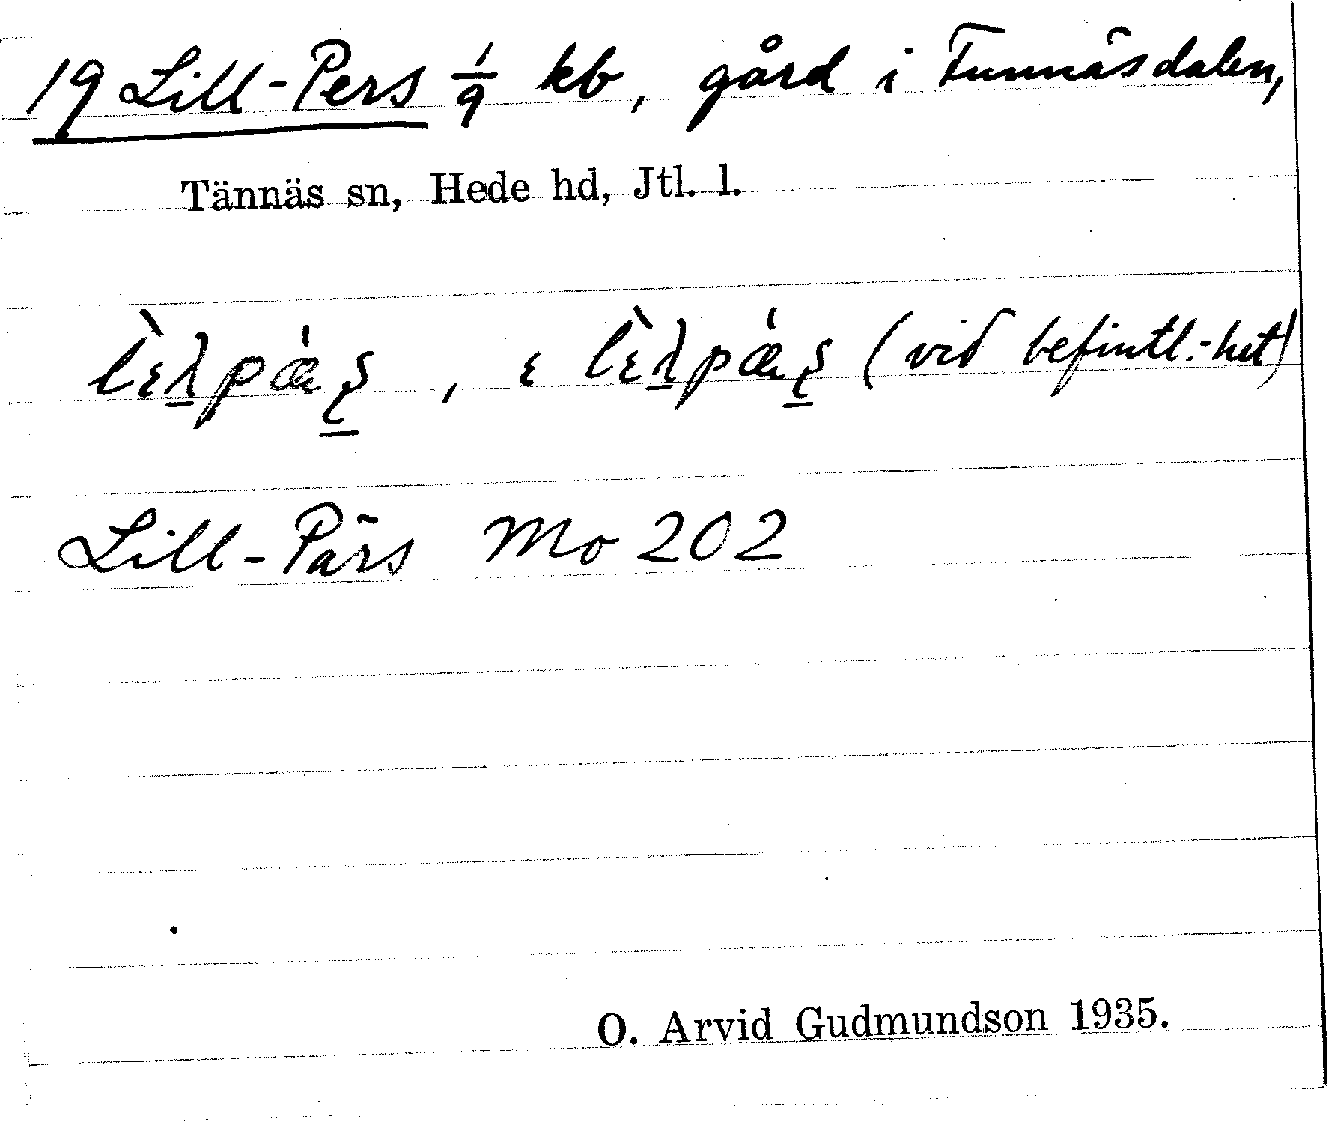 19 Lill-Pers 1/9 kb, gård i Funnäsdalen,
Tännäs sn, Hede hd, Jtl. l.
(vid befintl.-het)
Lill-Pärs Mo 202
O. Arvid Gudmundson 1935.